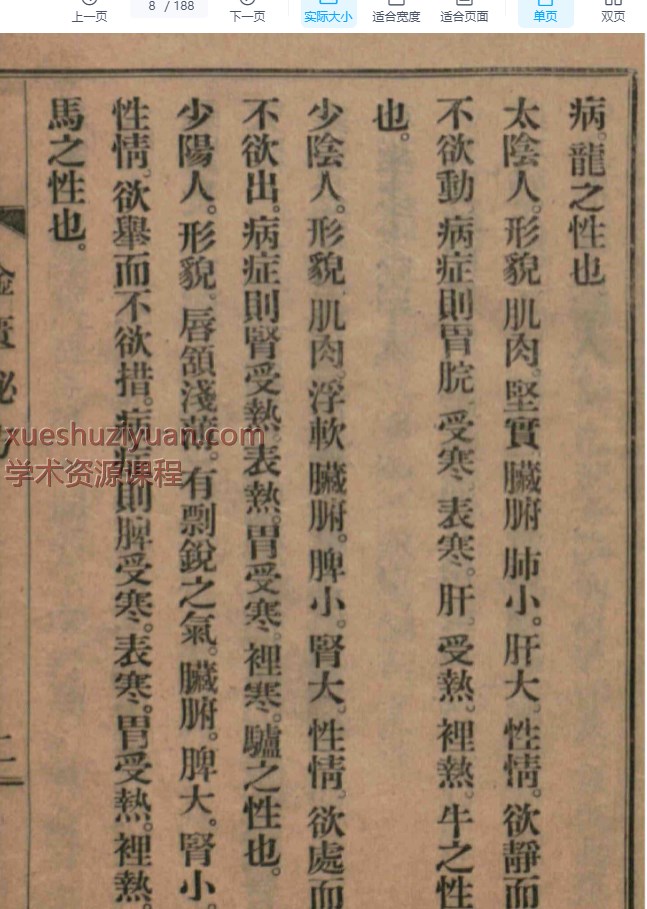 上一页
8 / 188
下一页
实际大小
适合宽度
适合页面
单页
双页
病。龍之性也
太陰人。形貌 肌肉。堅實 臟腑 肺小。肝大。性情。欲靜而
不欲動 病症則胃脘 受寒。表寒。肝 受熱。裡熱。牛之性
也。
少陰人。形貌 肌肉。浮軟 臟腑。脾小。腎大。性情。欲處而
不欲出。病症則腎受熱。表熱。胃受寒。裡寒。驢之性也。
少陽人。形貌。唇頷淺薄。有剽銳之氣。臟腑。脾大。腎小。
性情。欲舉而不欲措。病症則脾受寒。表寒。胃受熱。裡熱。
馬之性也。
xueshuziyuan.com
学术资源课程